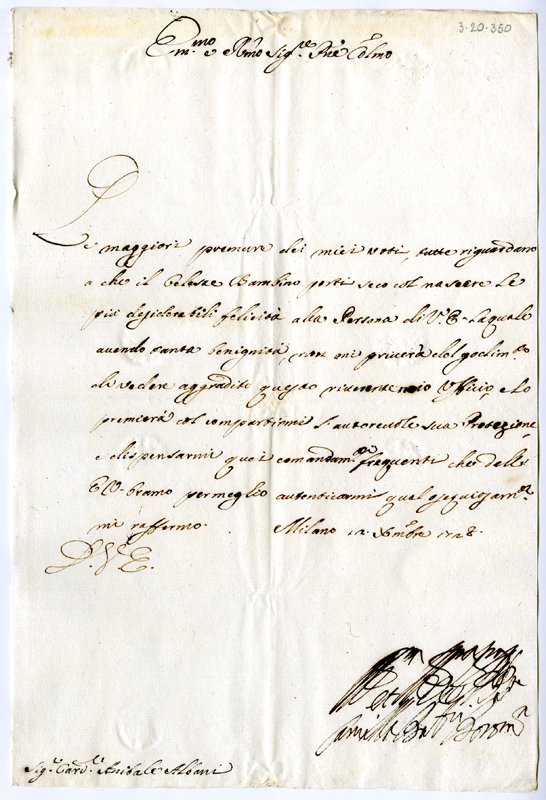 3-20-350
Em.mo e R̃mo Sig.re Prẽ Cõlmo
Le maggiori premure dei miei voti, tutte riguardano
a che il Celeste Bambino porti seco col nascere le
più desiderabili felicità alla Persona di V.E. la quale
avendo tanta benignità, non mi priverà del godim.to
di vedere aggradito questo riverente mio Ufficio, e lo
premierà col compartirmi l'autorevole sua Protezione,
e dispensarmi quei comandam.ti frequenti che dell'
E.V. bramo per meglio autenticarmi qual ossequiosam.te
mi raffermo. Milano 12 Xmbre 1728.
D. V. E.
Sig.r Card.l Anibale Albani